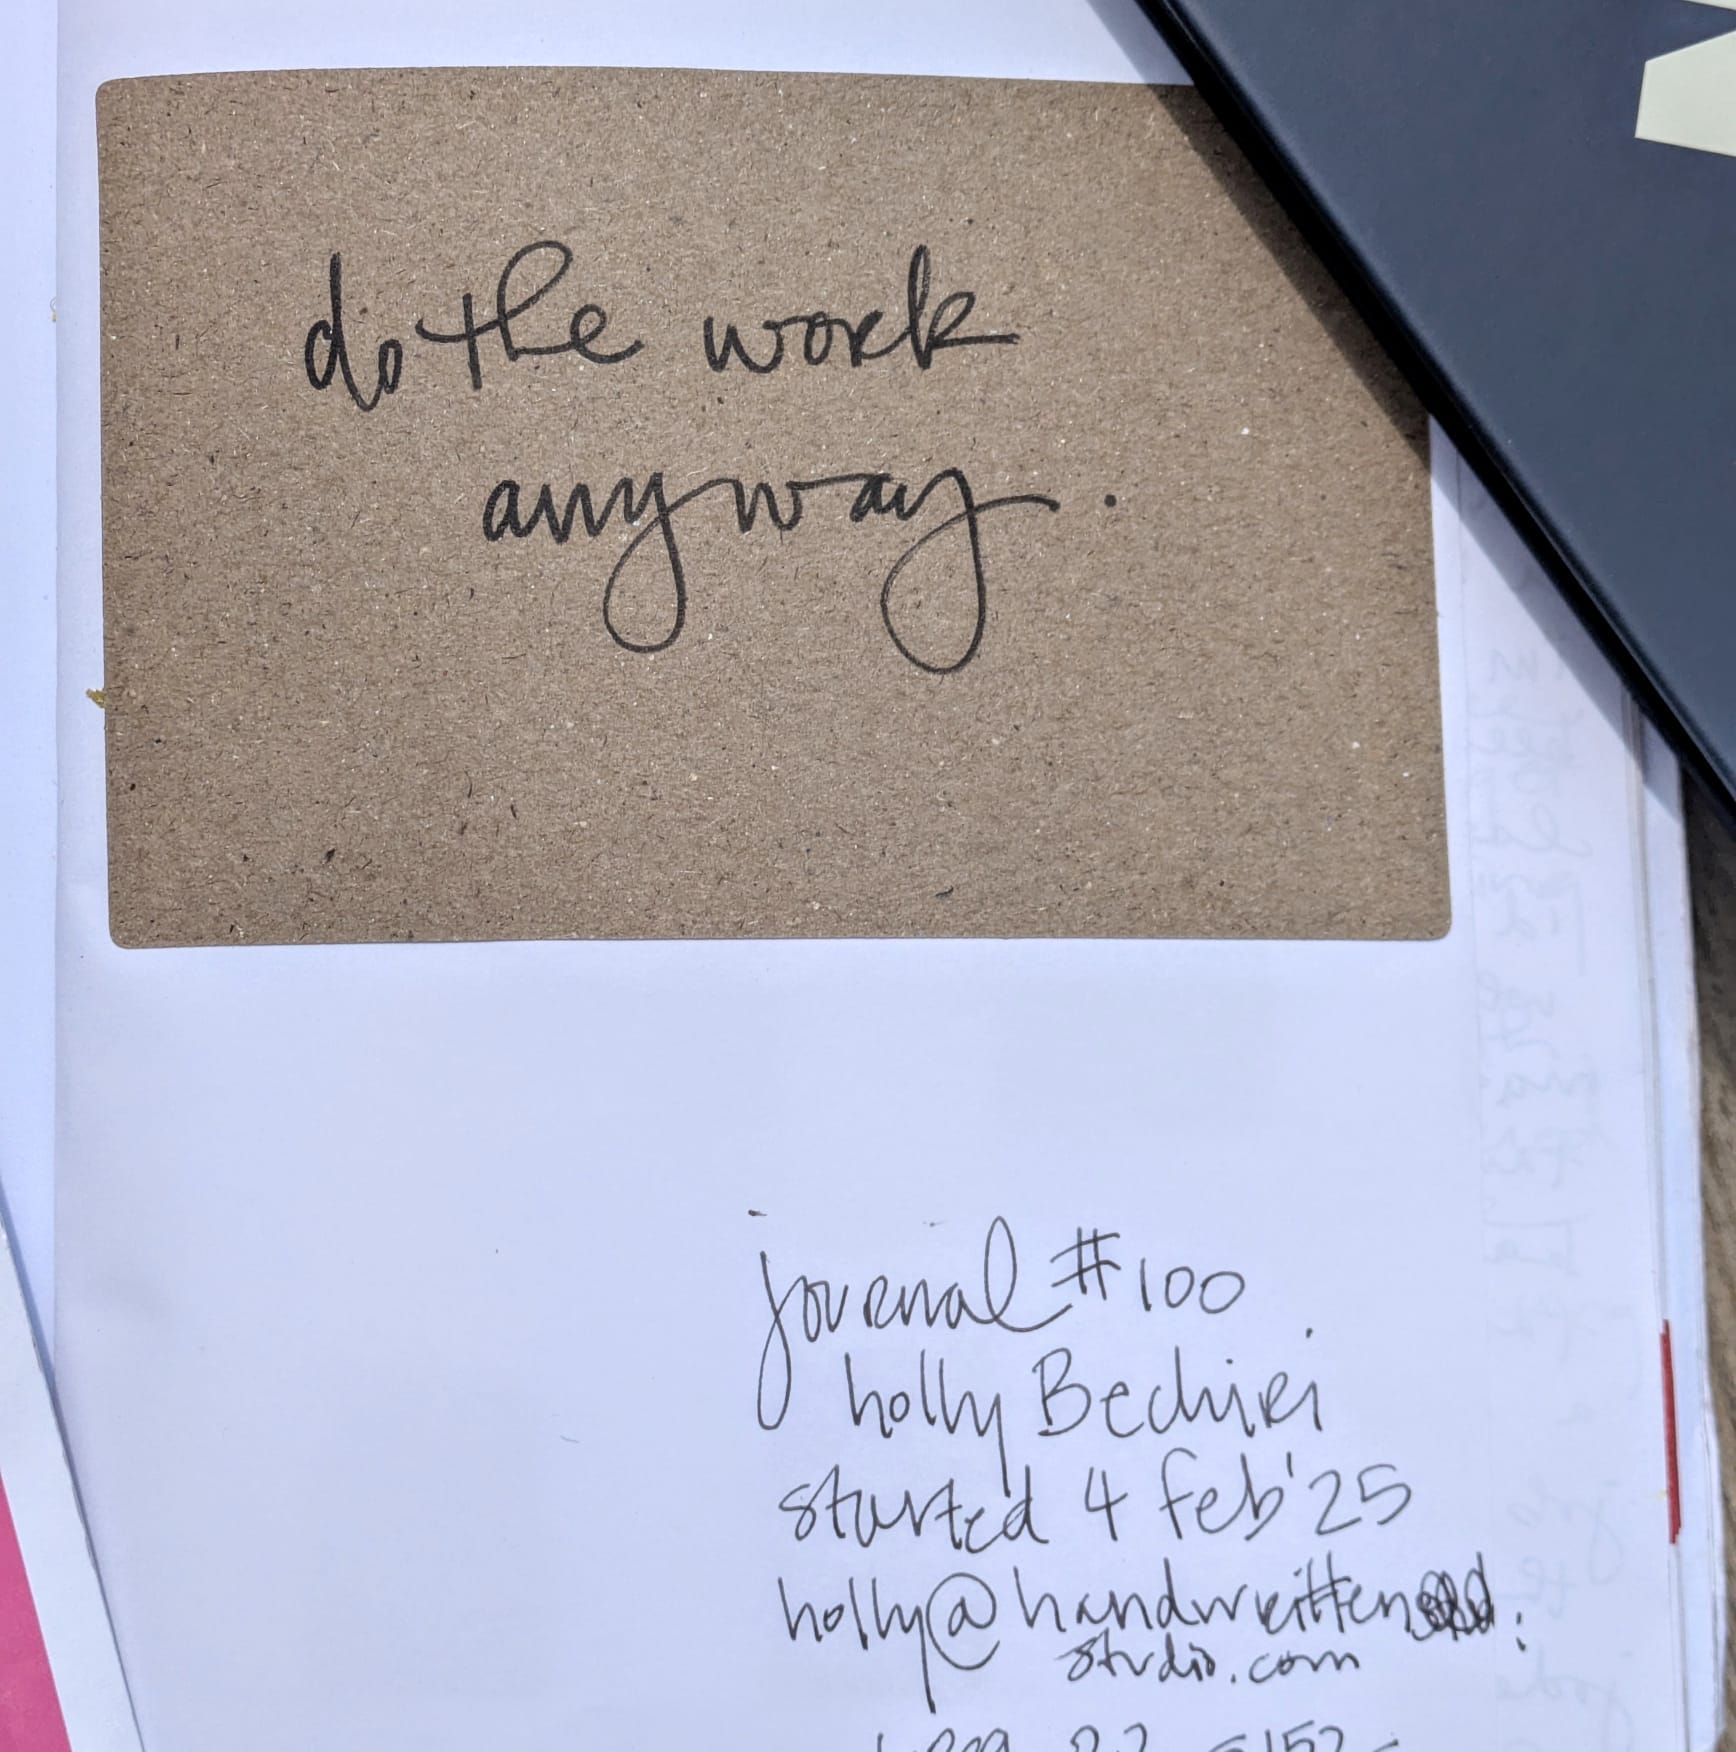 do the work
anyway.
journal #100
holly Bechiri
started 4 feb '25
holly@handwritten
studio.com